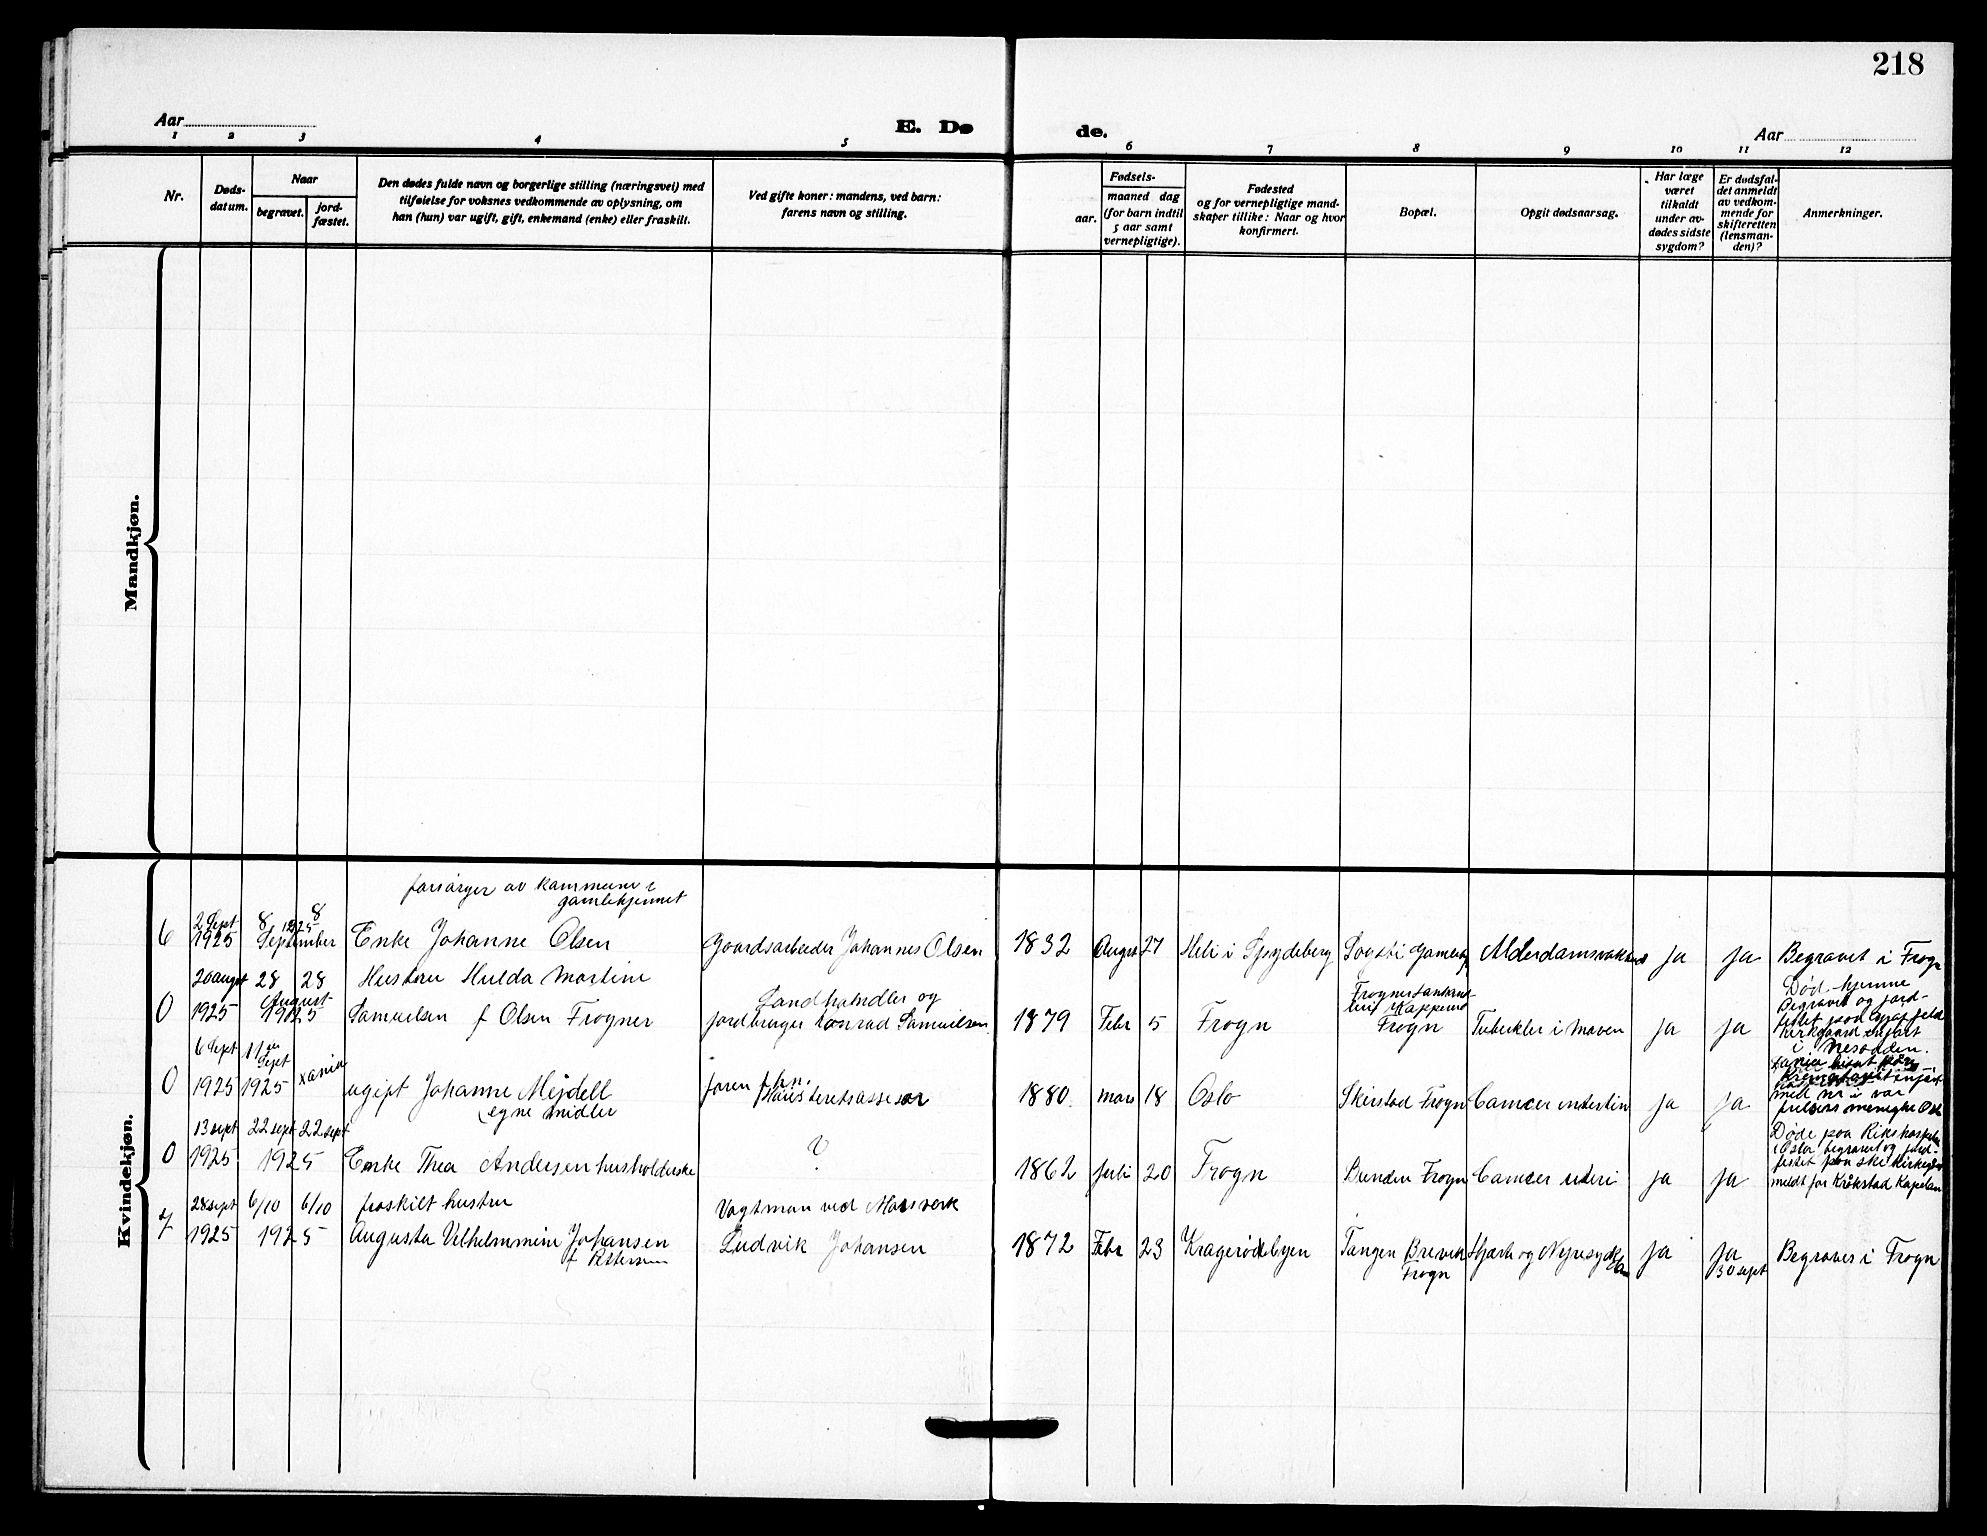 218
Aar
E. Dø
de.
Aar
1 2 3 4 5 6 7 8 9 10 11 12
Nr.
Døds-
datum.
Naar
begravet.
jord-
fæstet.
Den dødes fulde navn og borgerlige stilling (næringsvei) med
tilføielse for voksnes vedkommende av oplysning, om
han (hun) var ugift, gift, enkemand (enke) eller fraskilt.
Ved gifte koner: mandens, ved barn:
farens navn og stilling.
Fødsels-
aar.
maaned dag
(for barn indtil
5 aar samt
vernepligtige).
Fødested
og for vernepligtige mand-
skaper tillike: Naar og hvor
konfirmert.
Bopæl.
Opgit dødsaarsag.
Har læge
været
tilkaldt
under av-
dødes sidste
sygdom?
Er dødsfal-
det anmeldt
av vedkom-
mende for
skifteretten
(lensman-
den)?
Anmerkninger.
Mandkjøn.
Kvindekjøn.
forsørges av kommunen i
gamlehjemmet
6
2 Sept
1925
8 1925 8
September
Enke Johanne Olsen
Gaardsarbeider Johannes Olsen
1832
August
27
Heli i Spydeberg
Sogsti Gamlehj
Alderdomsvakhed
ja
ja
Begravet i Frogn
0
20 august
1925
28 28
August
1925
Hustru Hulda Martine
Samuelsen f Olsen Frogner
Landhandler og
jordbruger Konrad Samuelsen
1879
Febr
5
Frogn
Frogn
Tuberkler i Maven
ja
ja
Død hjemme
Begravet og jord-
kirkegaard
i Nesodden.
0
6 Sept
1925
11
Sept
1925
ugift Johanne Mejdell
egne midler
faren
1880.
mars
18
Oslo
Skirstad Frogn
Cancer
ja
ja
0
13 sept
1925
22 sept 22 sept
1925
Enke Thea Andersen husholderske
?
1862
juli
20
Frogn
Bunden Frogn
Cancer uteri
ja
ja
Døde paa Rikshospitalet
i Oslo begravet og jord-
fæstet paa Ski Kirkegaard
meldt for Kråkstad Kapelan
7
28 sept
1925
6/10 6/10
1925
fraskilt hustru
Augusta Vilhelmmine Johansen
f Pettersen
Vagtman ved
Ludvik Johansen
1872
Febr
23
Kragerø byen
Tangen Brevik
Frogn
Hjerte og Nyresygdom
ja
ja
30 sept
Begraves i Frogn